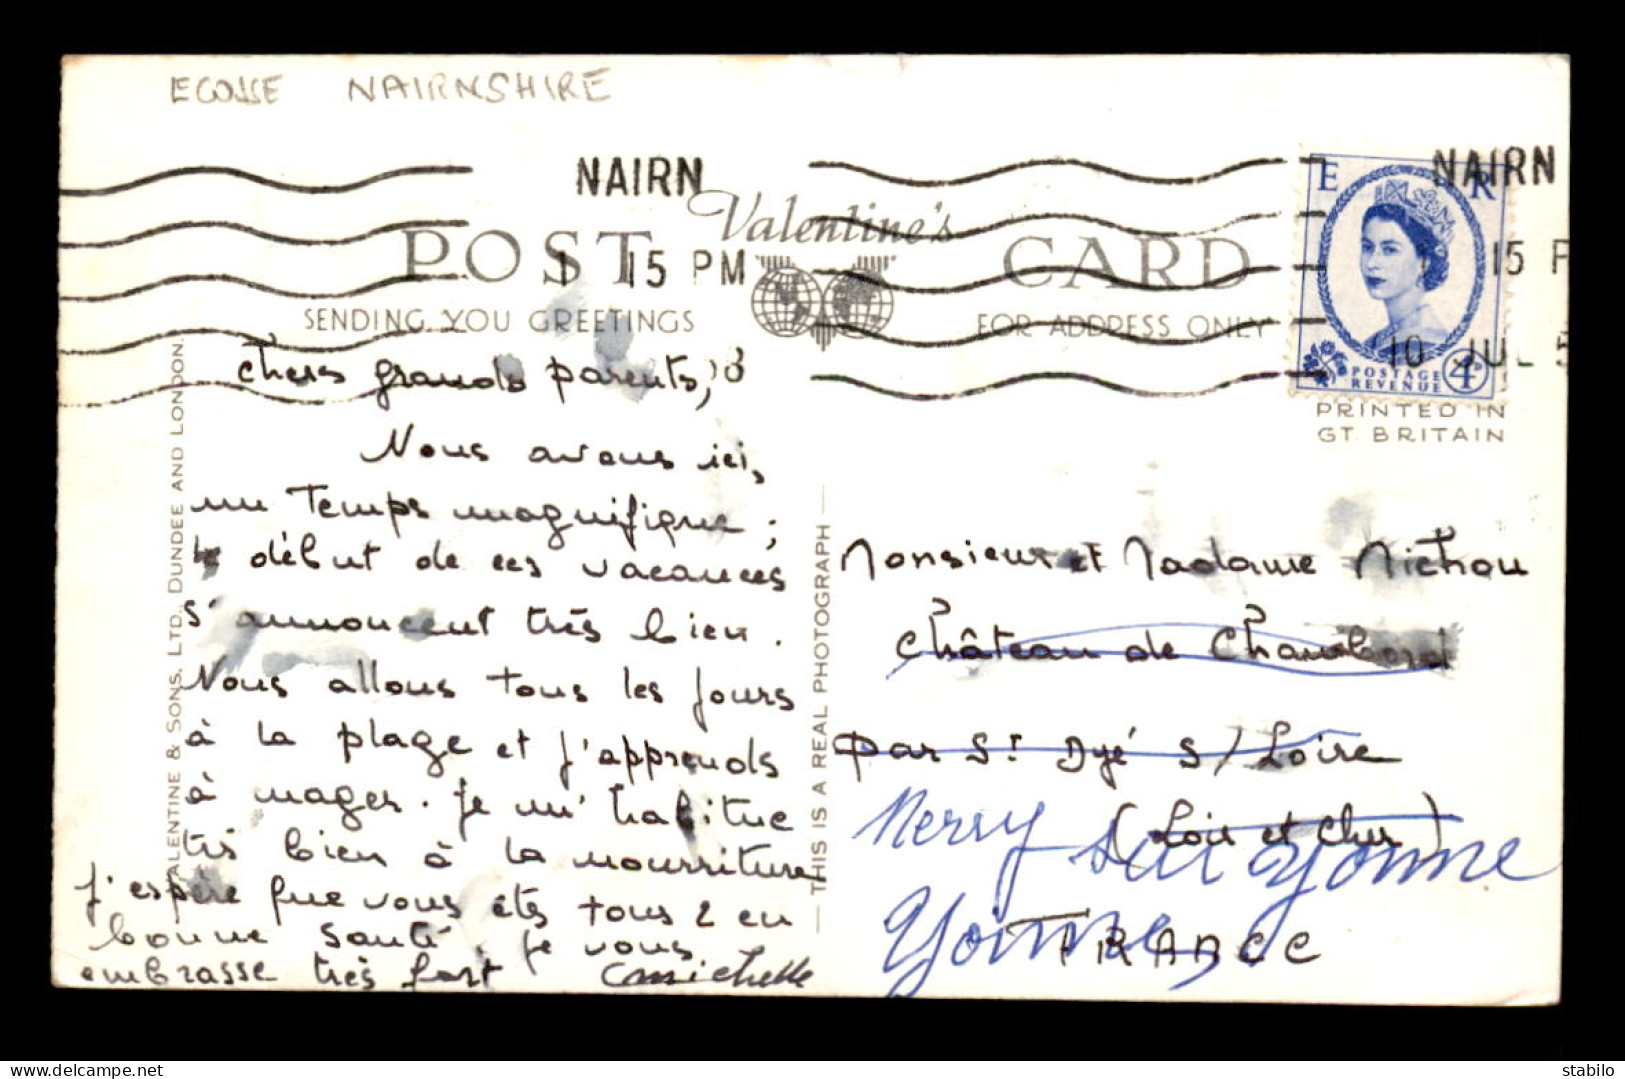 ECOSSE NAIRNSHIRE
NAIRN
NAIRN
Valentine's
POST CARD
1 15 PM
15 P
SENDING YOU GREETINGS
FOR ADDRESS ONLY
10 JUL 5
E R
POSTAGE
REVENUE
4D
PRINTED IN
GT. BRITAIN
VALENTINE & SONS, LTD., DUNDEE AND LONDON.
THIS IS A REAL PHOTOGRAPH
Chers grands parents,
Nous avons ici,
un temps magnifique ;
le début de ces vacances
s'annoncent très bien.
Nous allons tous les jours
à la plage et j'apprends
à nager. Je m'habitue
très bien à la nourriture
J'espère que vous êtes tous 2 en
bonne santé. Je vous
embrasse très fort Michelle
Monsieur et Madame Michou
Château de Chambord
par St Dyé s/Loire
(Loir et Cher)
FRANCE
Merry sur Yonne
Yonne
stabilo
delcampe.net